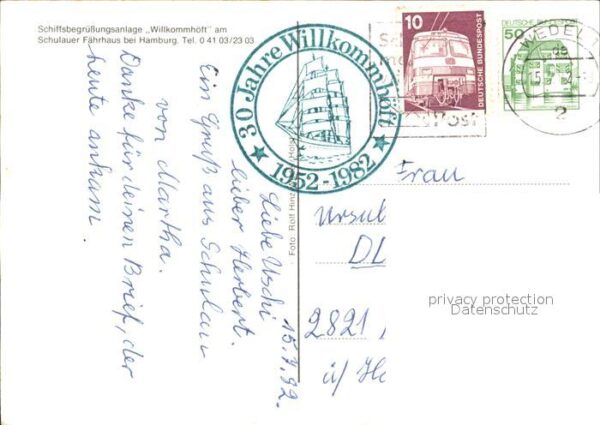 Schiffsbegrüßungsanlage „Willkommhöft" am
Schulauer Fährhaus bei Hamburg. Tel. 0 41 03/23 03
★ 30 Jahre Willkommhöft ★
1952-1982
10
DEUTSCHE BUNDESPOST
50
DEUTSCHE BUNDESPOST
WEDEL
2
15.7.92.
Liebe Uschi
lieber Herbert.
Ein Gruß aus Schulau
von Martha.
Danke für deinen Brief, der
heute ankam.
Foto Rolf Hinz
Frau
Ursul
DL
2821
ü/ He
privacy protection
Datenschutz